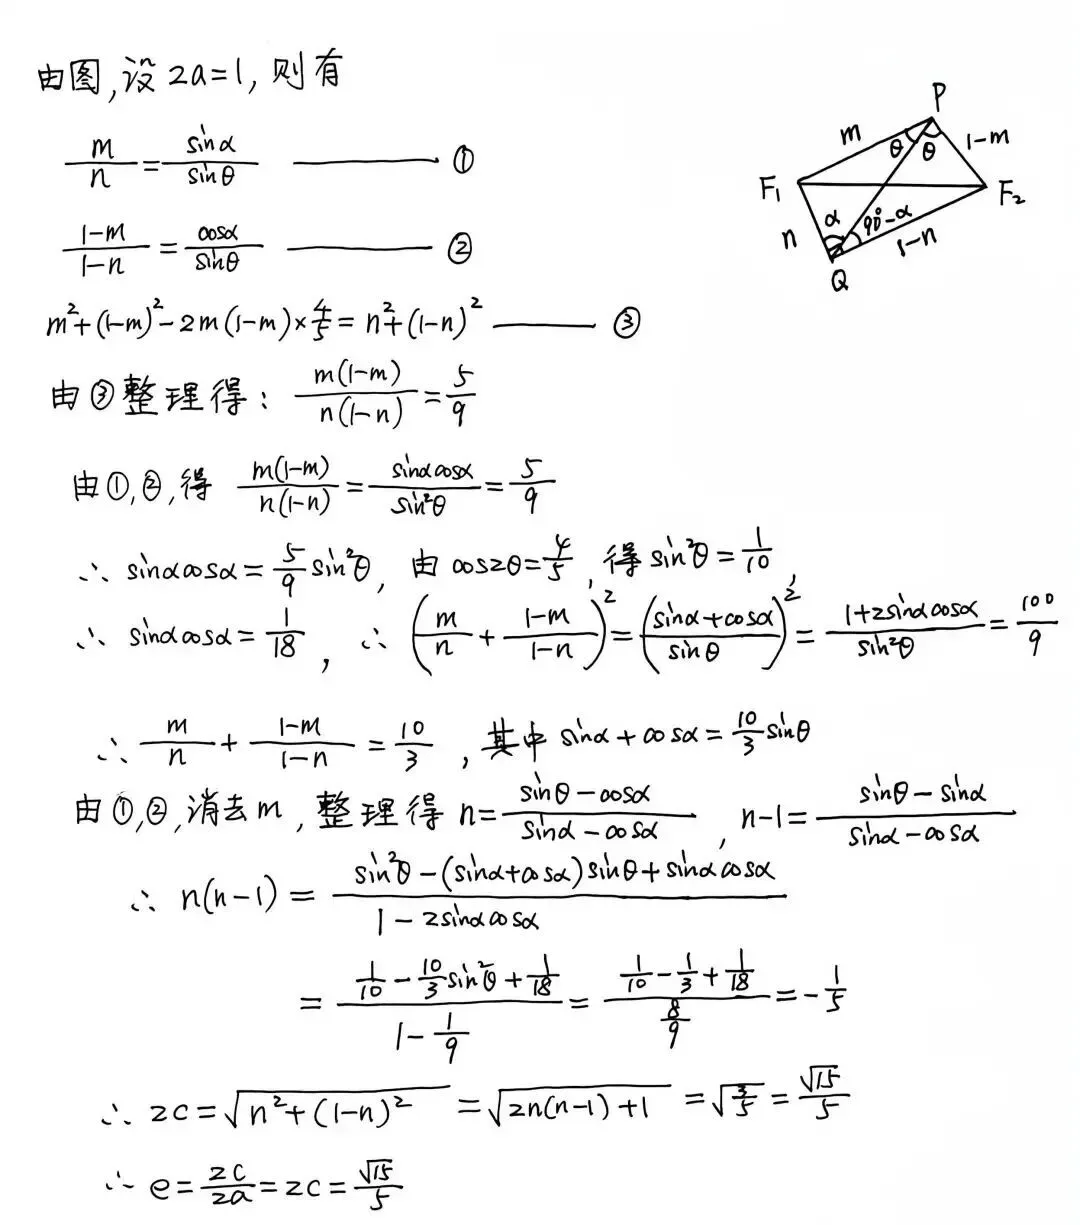 由图,设2a=1,则有
m/n = sinα/sinθ ———— ①
(1-m)/(1-n) = cosα/sinθ ———— ②
m²+(1-m)²-2m(1-m)×4/5=n²+(1-n)² ———— ③
由③整理得: m(1-m)/n(1-n) = 5/9
由①,②,得 m(1-m)/n(1-n) = sinαcosα/sin²θ = 5/9
∴ sinαcosα = 5/9 sin²θ, 由 cos2θ=4/5, 得 sin²θ=1/10,
∴ sinαcosα = 1/18, ∴ (m/n + (1-m)/(1-n))² = ((sinα+cosα)/sinθ)² = (1+2sinαcosα)/sin²θ = 100/9
∴ m/n + (1-m)/(1-n) = 10/3, 其中 sinα+cosα = 10/3 sinθ
由①,②,消去m,整理得 n = (sinθ-cosα)/(sinα-cosα), n-1 = (sinθ-sinα)/(sinα-cosα)
∴ n(n-1) = (sin²θ-(sinα+cosα)sinθ+sinαcosα)/(1-2sinαcosα)
= (1/10 - 10/3 sin²θ + 1/18)/(1-1/9) = (1/10 - 1/3 + 1/18)/(8/9) = -1/5
∴ 2c = √(n²+(1-n)²) = √(2n(n-1)+1) = √(3/5) = √15/5
∴ e = 2c/2a = 2c = √15/5
P
m
θ
θ
1-m
F₁
F₂
n
α
90°-α
1-n
Q